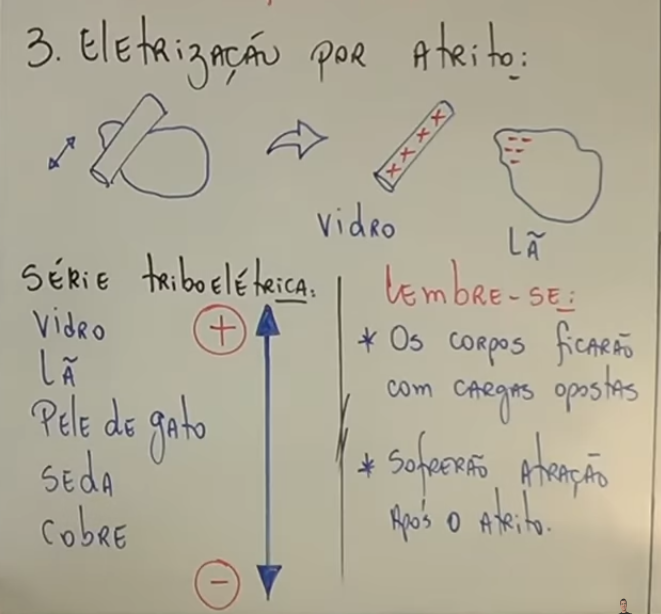 3. Eletrização por Atrito:
Vidro
Lã
Série triboelétrica:
Vidro
Lã
Pele de gato
Seda
Cobre
+
-
Lembre-se:
* Os corpos ficarão
com cargas opostas
* Sofrerão atração
Após o Atrito.